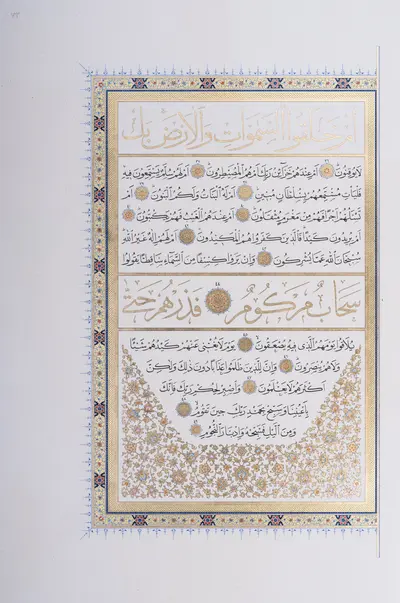 ٧٣
أَمْ خَلَقُوا السَّمَوَاتِ وَالْأَرْضَ بَلْ
لَا يُوقِنُونَ أَمْ عِنْدَهُمْ خَزَائِنُ رَبِّكَ أَمْ هُمُ الْمُصَيْطِرُونَ أَمْ لَهُمْ سُلَّمٌ يَسْتَمِعُونَ فِيهِ
فَلْيَأْتِ مُسْتَمِعُهُمْ بِسُلْطَانٍ مُبِينٍ أَمْ لَهُ الْبَنَاتُ وَلَكُمُ الْبَنُونَ أَمْ
تَسْأَلُهُمْ أَجْرًا فَهُمْ مِنْ مَغْرَمٍ مُثْقَلُونَ أَمْ عِنْدَهُمُ الْغَيْبُ فَهُمْ يَكْتُبُونَ
أَمْ يُرِيدُونَ كَيْدًا فَالَّذِينَ كَفَرُوا هُمُ الْمَكِيدُونَ أَمْ لَهُمْ إِلَهٌ غَيْرُ اللَّهِ
سُبْحَانَ اللَّهِ عَمَّا يُشْرِكُونَ وَإِنْ يَرَوْا كِسْفًا مِنَ السَّمَاءِ سَاقِطًا يَقُولُوا
سَحَابٌ مَرْكُومٌ فَذَرْهُمْ حَتَّى
يُلَاقُوا يَوْمَهُمُ الَّذِي فِيهِ يُصْعَقُونَ يَوْمَ لَا يُغْنِي عَنْهُمْ كَيْدُهُمْ شَيْئًا
وَلَا هُمْ يُنْصَرُونَ وَإِنَّ لِلَّذِينَ ظَلَمُوا عَذَابًا دُونَ ذَلِكَ وَلَكِنَّ
أَكْثَرَهُمْ لَا يَعْلَمُونَ وَاصْبِرْ لِحُكْمِ رَبِّكَ فَإِنَّكَ
بِأَعْيُنِنَا وَسَبِّحْ بِحَمْدِ رَبِّكَ حِينَ تَقُومُ
وَمِنَ اللَّيْلِ فَسَبِّحْهُ وَإِدْبَارَ النُّجُومِ